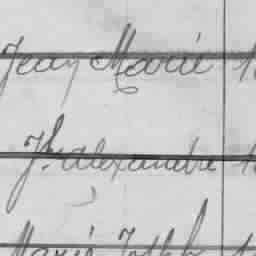 Jean Marie 1
Jh. alexandre 1
Marie Joseph 1